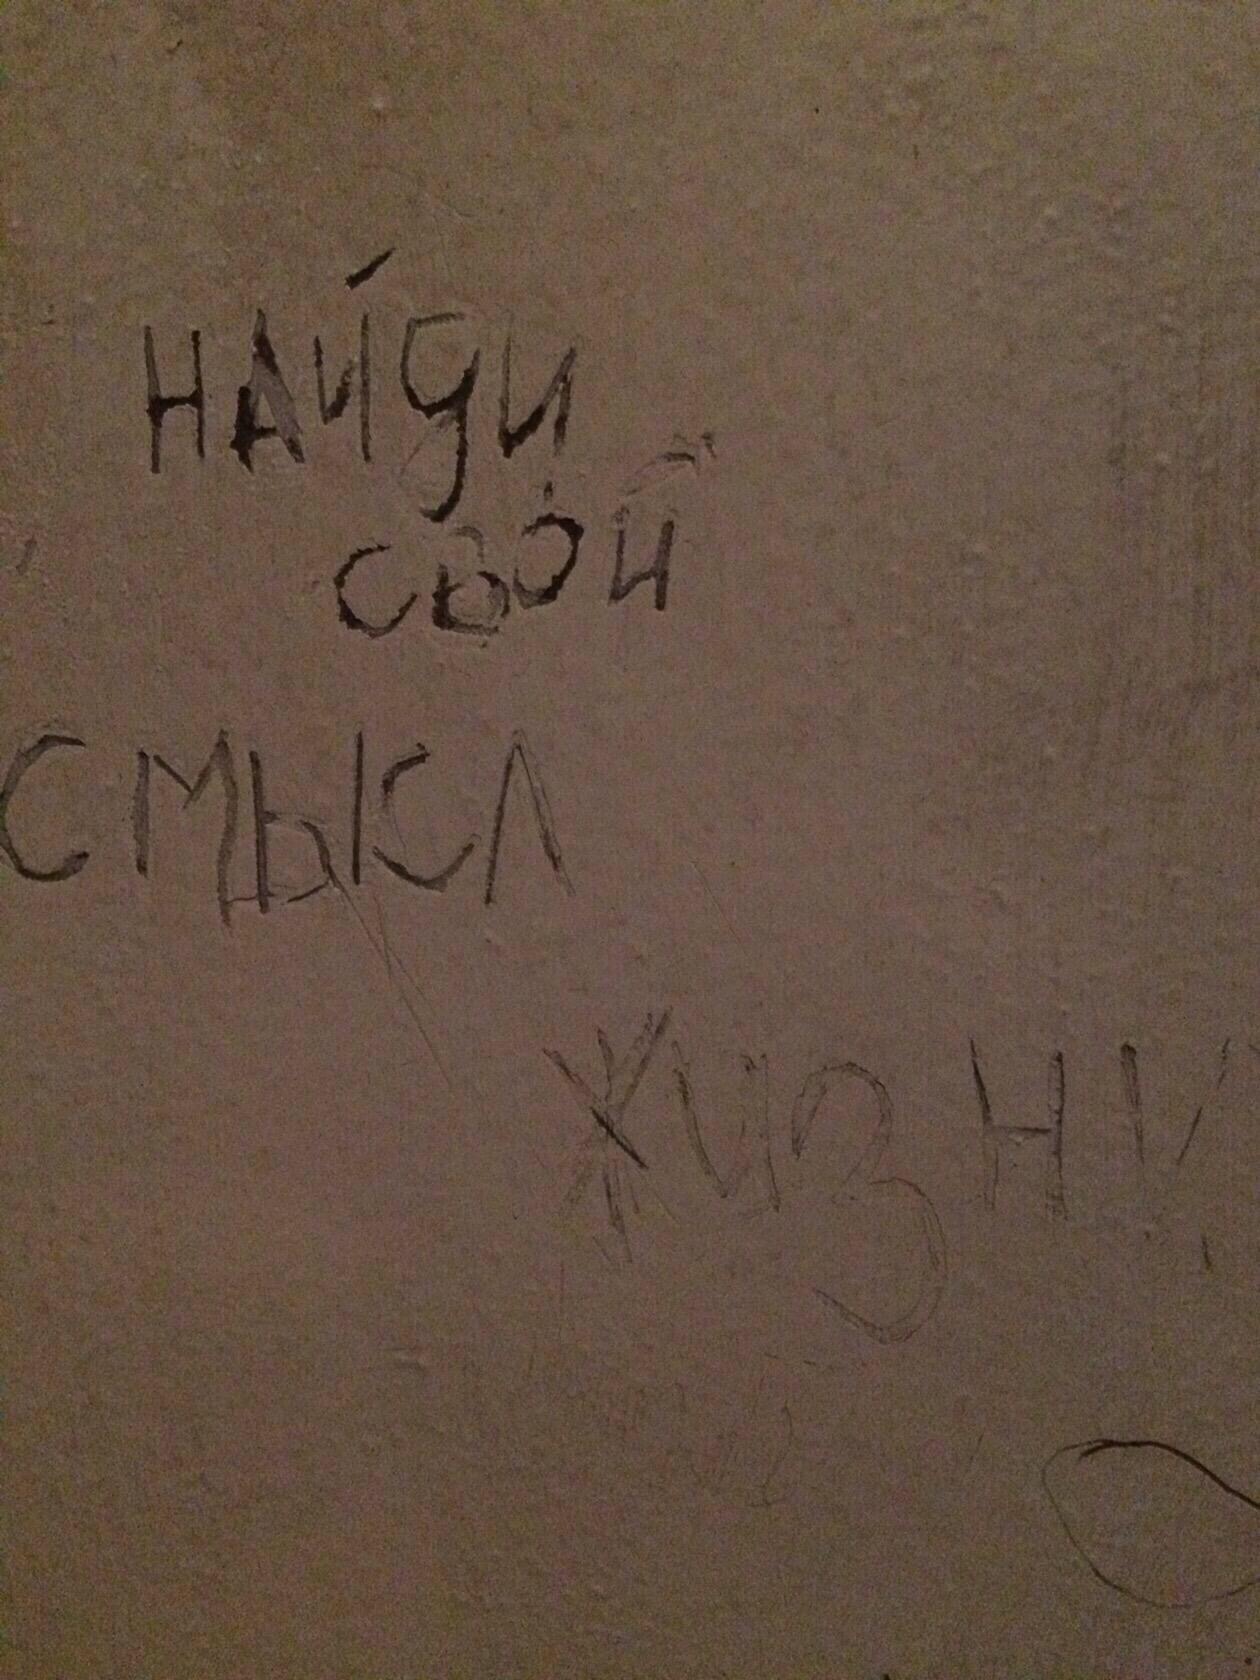 НАЙДИ
СВОЙ
СМЫСЛ
ЖИЗНИ